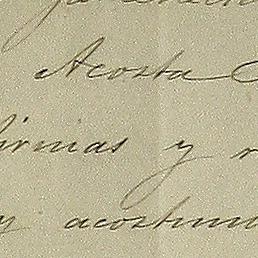 Acosta
firmas y r
y acostum